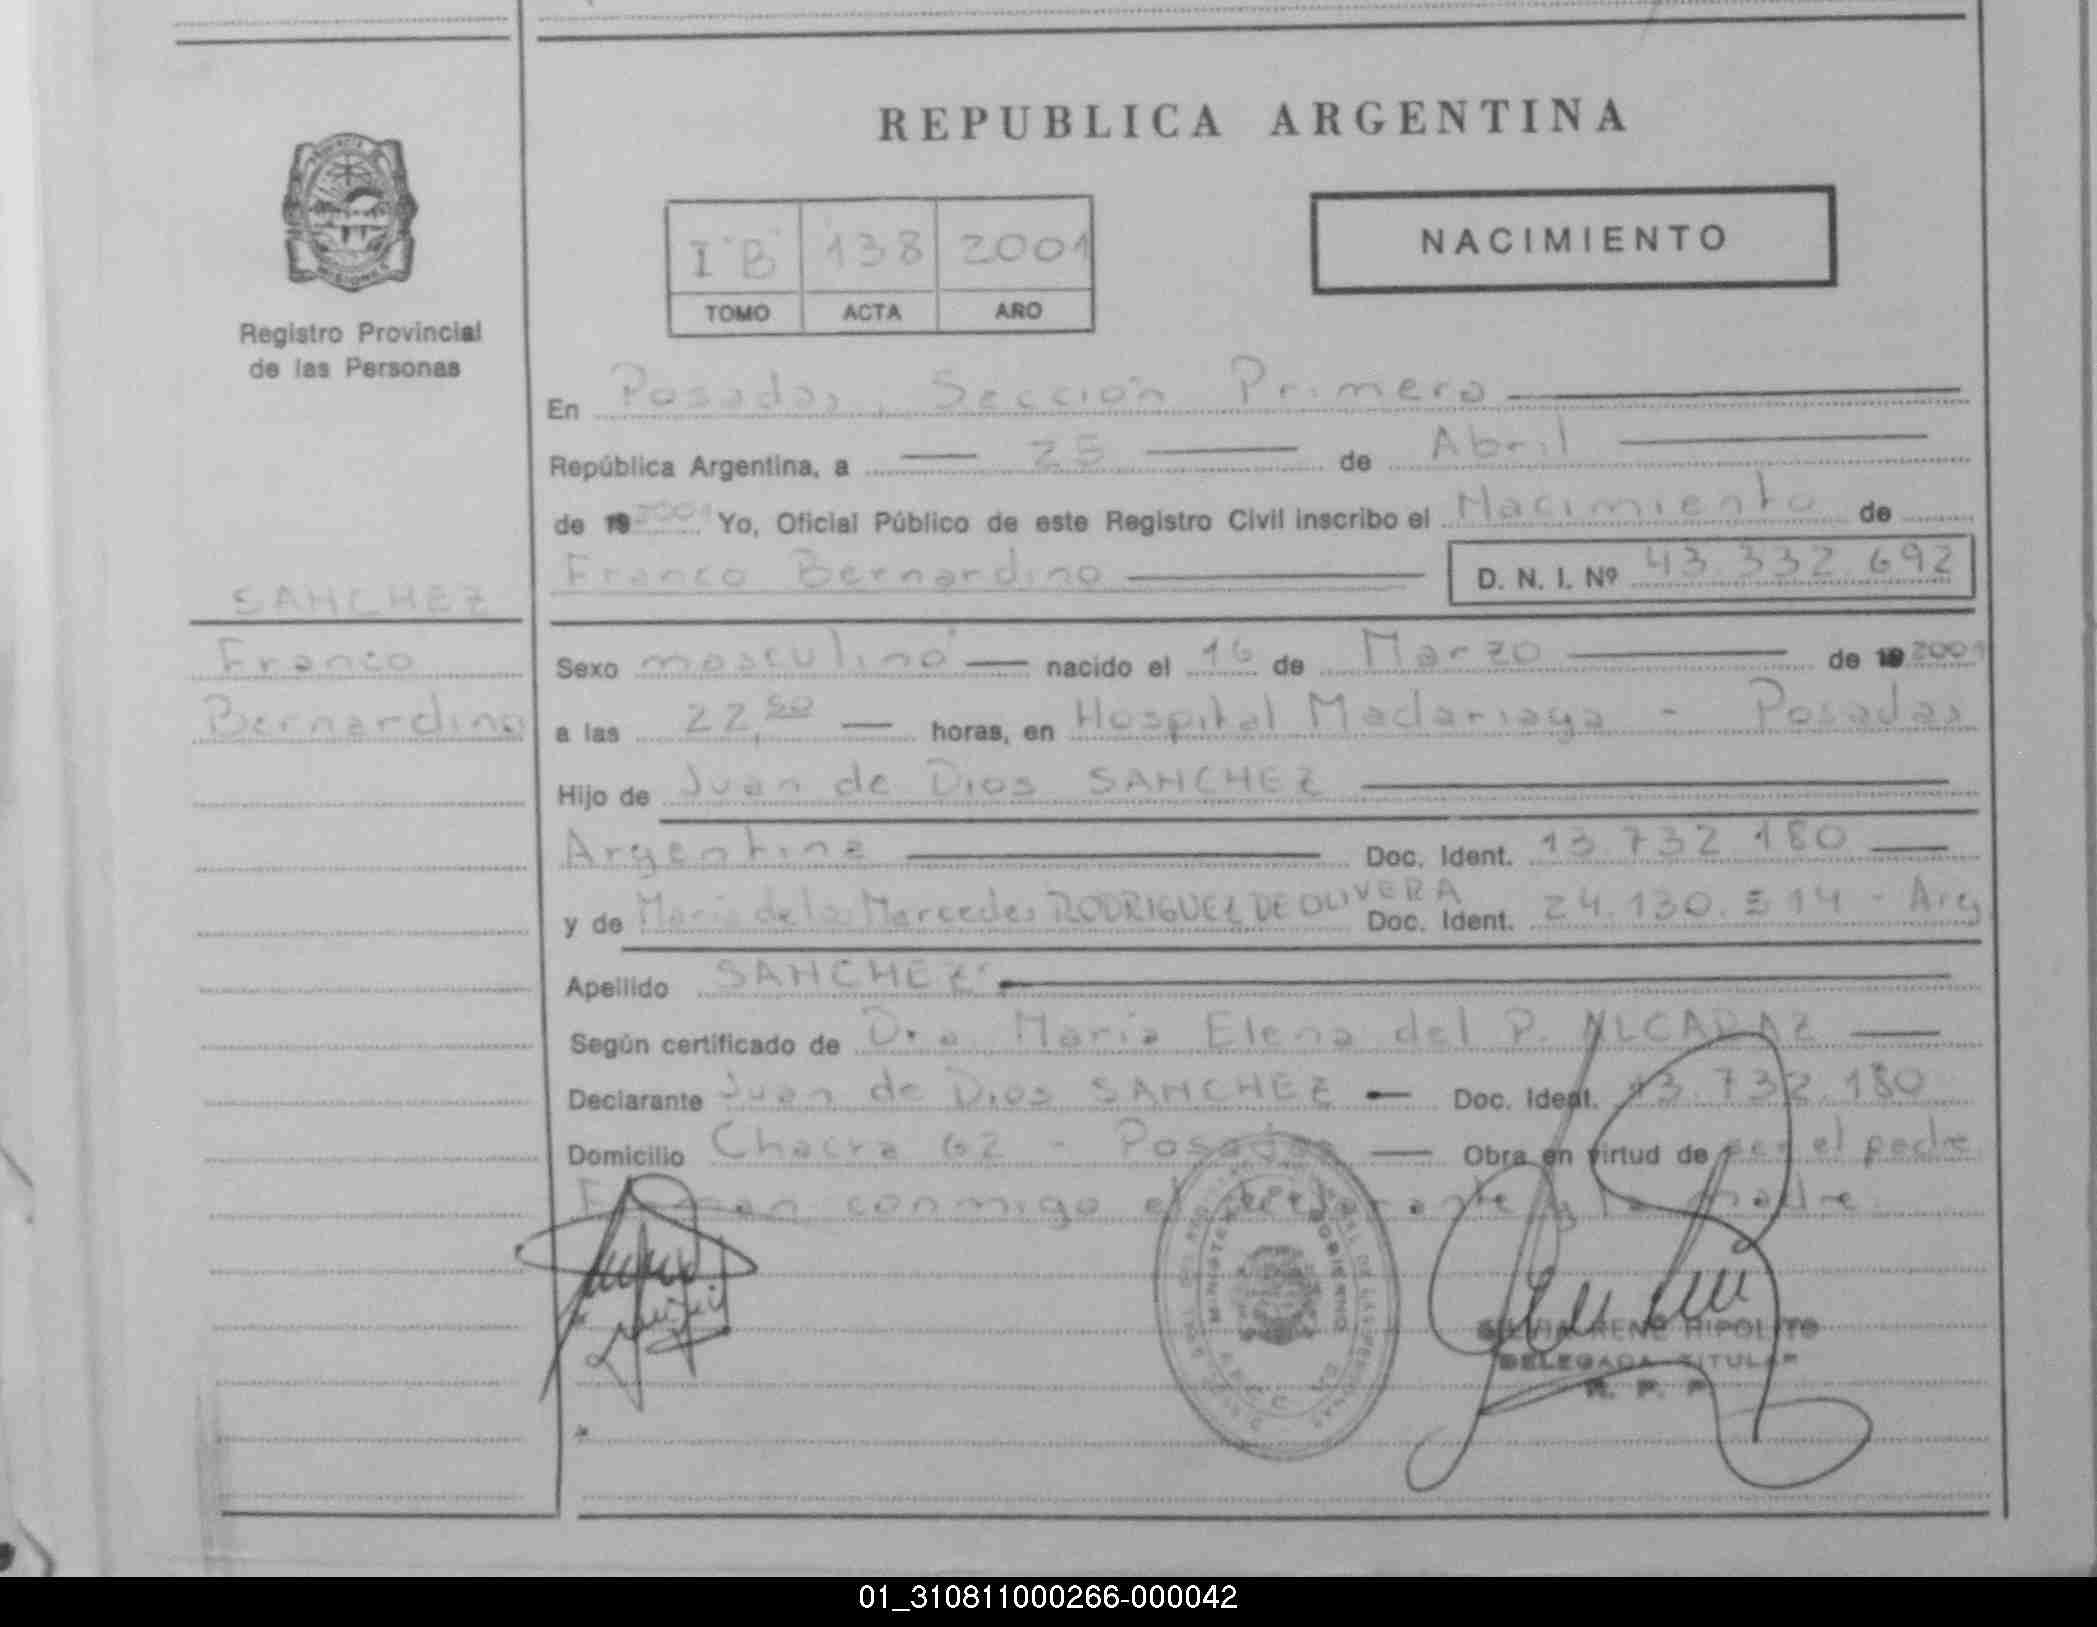 REPUBLICA ARGENTINA
NACIMIENTO
I "B" 138 2001
TOMO ACTA AÑO
Registro Provincial
de las Personas
En Posadas, Sección Primera
República Argentina, a 25 de Abril
de 19 2001 Yo, Oficial Público de este Registro Civil inscribo el Nacimiento de
Franco Bernardino D. N. I. Nº 43.332.692
SANCHEZ
Franco
Bernardino
Sexo masculino nacido el 16 de Marzo de 19 2001
a las 22, horas, en Hospital Madariaga - Posadas
Hijo de Juan de Dios SANCHEZ
Argentina Doc. Ident. 13.732.180
y de Maria de las Mercedes RODRIGUEZ DE OLIVERA Doc. Ident. 24.130.514 - Arg
Apellido SANCHEZ
Según certificado de Dra Maria Elena del P. ALCARAZ
Declarante Juan de Dios SANCHEZ Doc. Ident. 13.732.180
Domicilio Chacra 62 - Posadas Obra en virtud de ser el padre
Firman conmigo el declarante y la madre.
SILVIA RENE HIPOLITO
DELEGADA TITULAR
R. P. P.
01_310811000266-000042